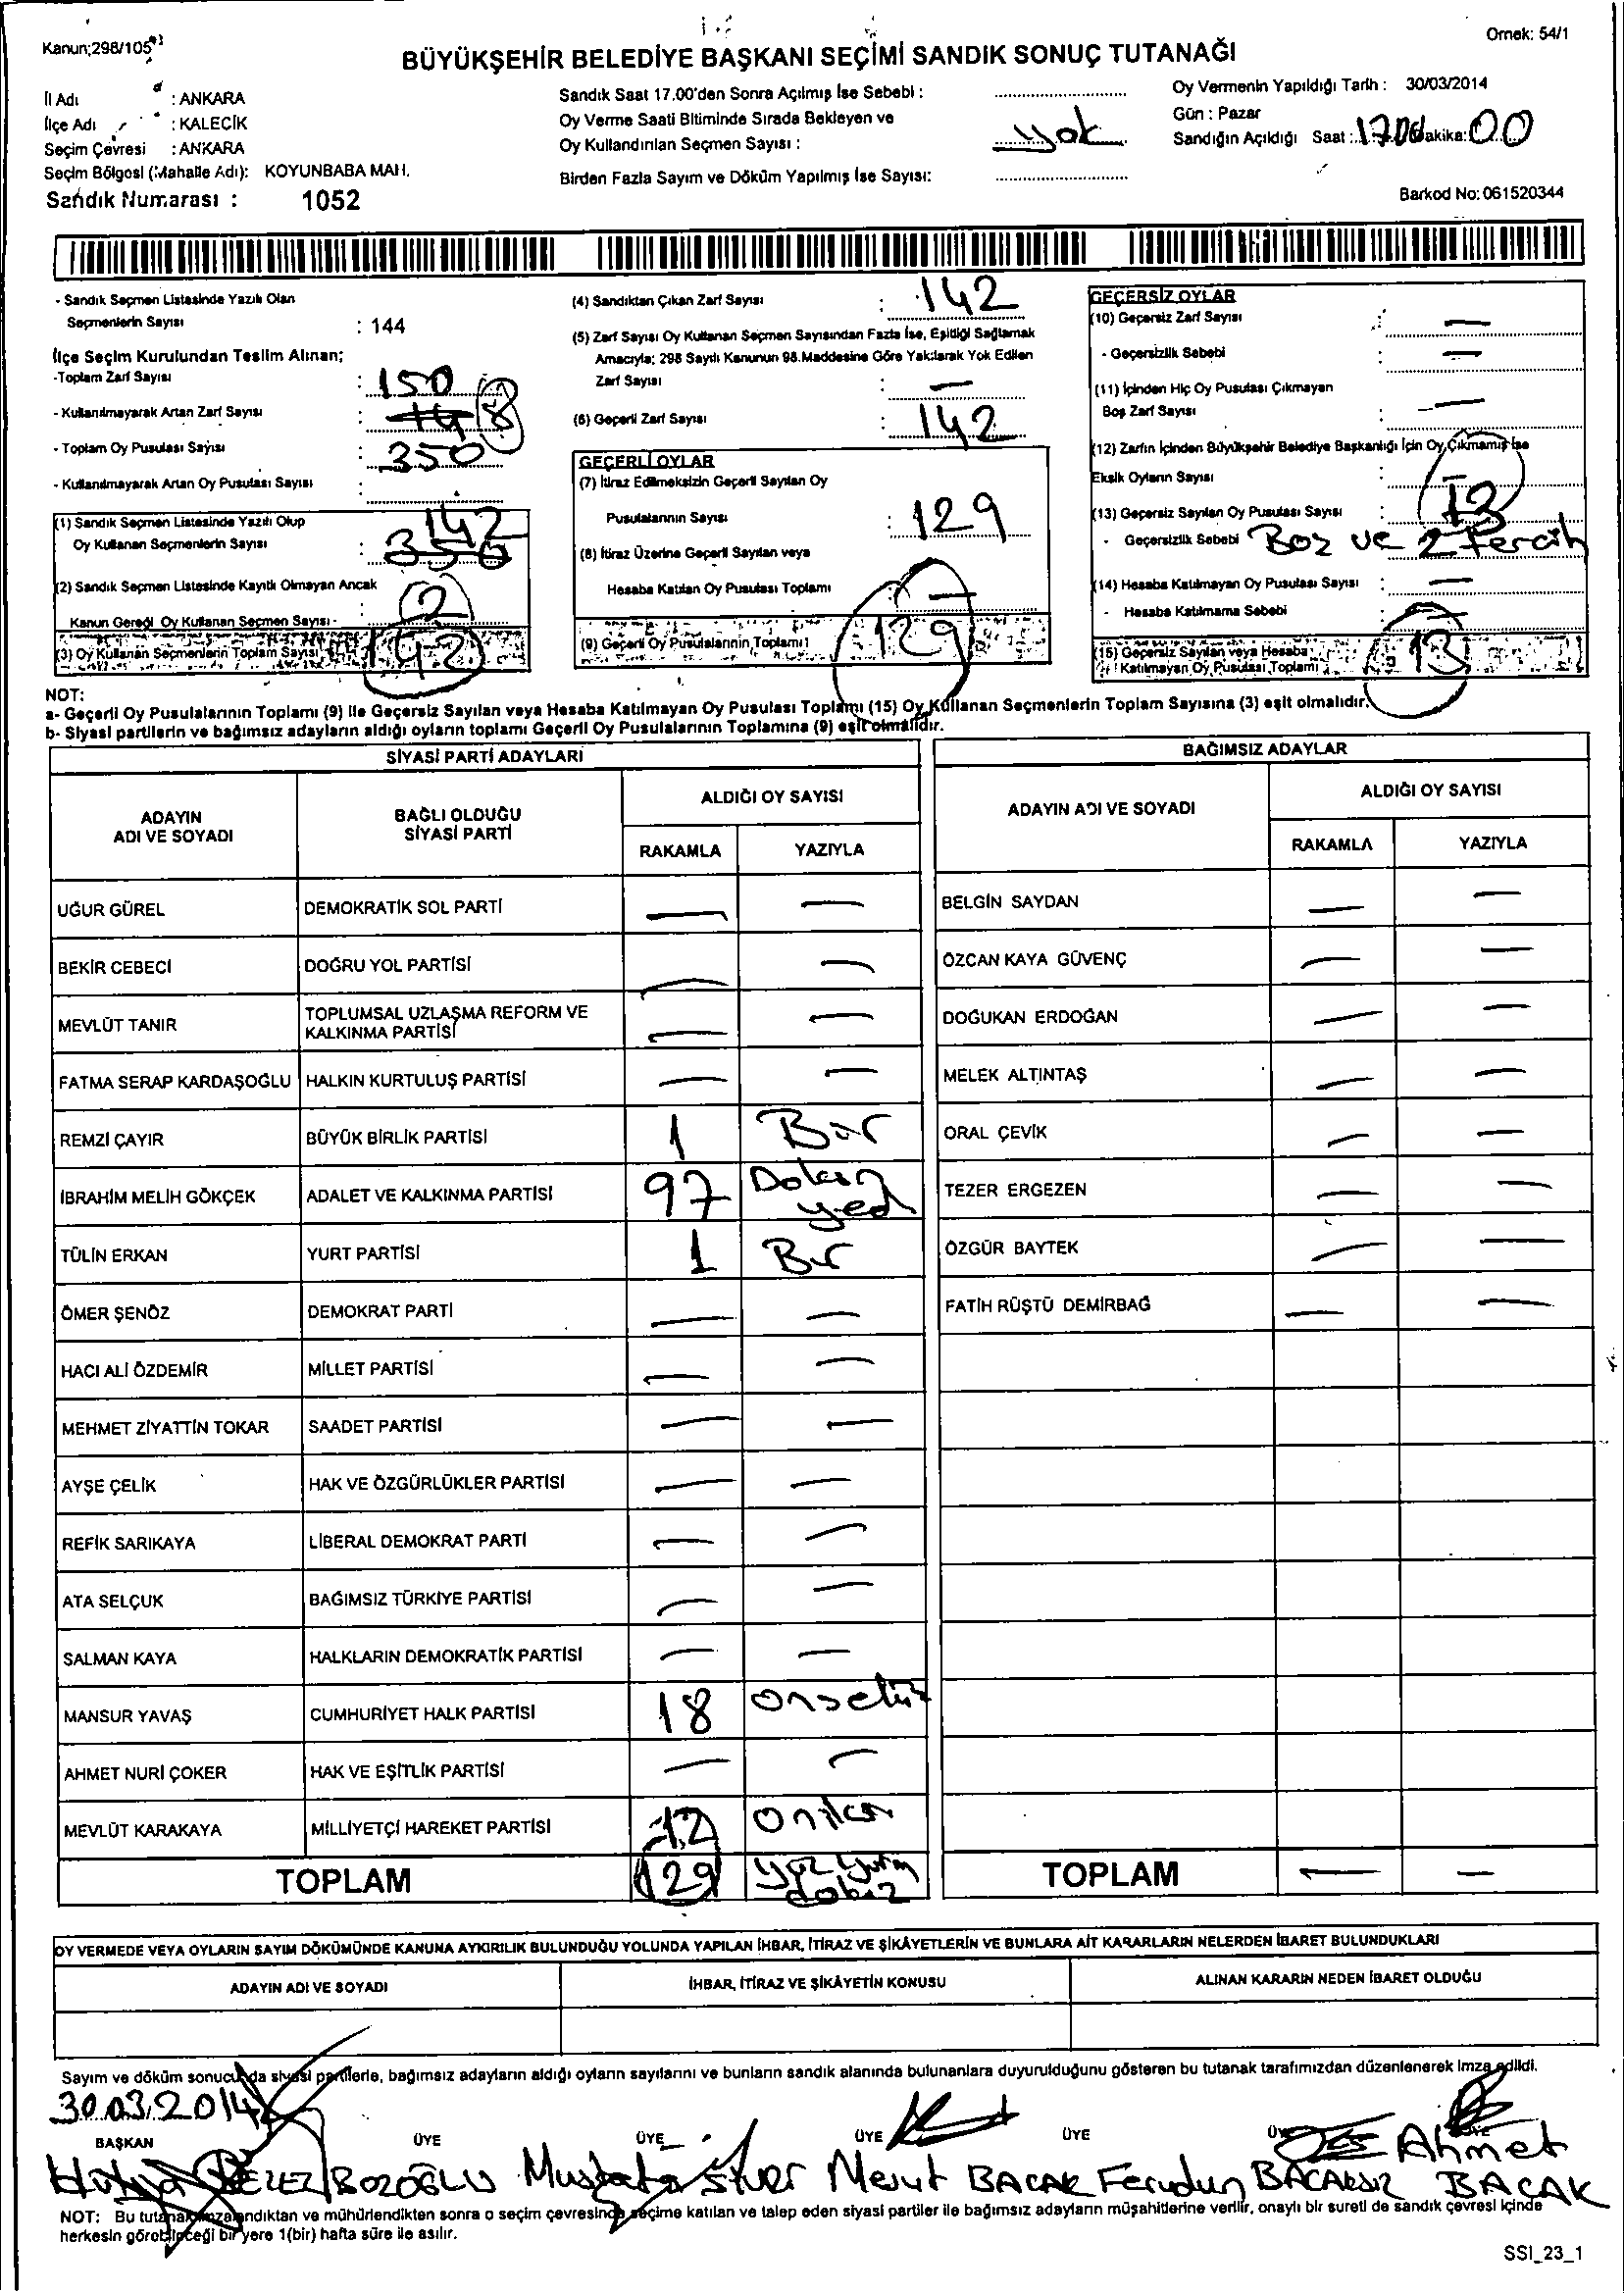 Kanun;298/105
Örnek: 54/1
BÜYÜKŞEHİR BELEDİYE BAŞKANI SEÇİMİ SANDIK SONUÇ TUTANAĞI
İl Adı : ANKARA
İlçe Adı : KALECİK
Seçim Çevresi : ANKARA
Seçim Bölgesi (Mahalle Adı): KOYUNBABA MAH.
Sandık Numarası : 1052
Sandık Saat 17.00'den Sonra Açılmış İse Sebebi :
Oy Verme Saati Bitiminde Sırada Bekleyen ve
Oy Kullandırılan Seçmen Sayısı : yok
Birden Fazla Sayım ve Döküm Yapılmış İse Sayısı:
Oy Vermenin Yapıldığı Tarih : 30/03/2014
Gün : Pazar
Sandığın Açıldığı Saat : 17.00 Dakika: 00
Barkod No: 061520344
- Sandık Seçmen Listesinde Yazılı Olan
Seçmenlerin Sayısı : 144
İlçe Seçim Kurulundan Teslim Alınan;
-Toplam Zarf Sayısı : 150
- Kullanılmayarak Artan Zarf Sayısı : 8
- Toplam Oy Pusulası Sayısı : 350
- Kullanılmayarak Artan Oy Pusulası Sayısı :
(1) Sandık Seçmen Listesinde Yazılı Olup
Oy Kullanan Seçmenlerin Sayısı : 142 350
(2) Sandık Seçmen Listesinde Kayıtlı Olmayan Ancak
Kanun Gereği Oy Kullanan Seçmen Sayısı - 2
(3) Oy Kullanan Seçmenlerin Toplam Sayısı 142
(4) Sandıktan Çıkan Zarf Sayısı : 142
(5) Zarf Sayısı Oy Kullanan Seçmen Sayısından Fazla İse, Eşitliği Sağlamak
Amacıyla; 298 Sayılı Kanunun 98.Maddesine Göre Yakılarak Yok Edilen
Zarf Sayısı : —
(6) Geçerli Zarf Sayısı : 142
GEÇERLİ OYLAR
(7) İtiraz Edilmeksizin Geçerli Sayılan Oy
Pusulalarının Sayısı : 129
(8) İtiraz Üzerine Geçerli Sayılan veya
Hesaba Katılan Oy Pusulası Toplamı : —
(9) Geçerli Oy Pusulalarının Toplamı 129
GEÇERSİZ OYLAR
(10) Geçersiz Zarf Sayısı : —
- Geçersizlik Sebebi : —
(11) İçinden Hiç Oy Pusulası Çıkmayan
Boş Zarf Sayısı : —
(12) Zarfın İçinden Büyükşehir Belediye Başkanlığı İçin Oy Çıkmamış İse
Eksik Oyların Sayısı :
(13) Geçersiz Sayılan Oy Pusulası Sayısı : 13
- Geçersizlik Sebebi Boz ve 2 Tercih
(14) Hesaba Katılmayan Oy Pusulası Sayısı : —
- Hesaba Katılmama Sebebi : —
(15) Geçersiz Sayılan veya Hesaba
Katılmayan Oy Pusulası Toplamı : 13
NOT:
a- Geçerli Oy Pusulalarının Toplamı (9) İle Geçersiz Sayılan veya Hesaba Katılmayan Oy Pusulası Toplamı (15) Oy Kullanan Seçmenlerin Toplam Sayısına (3) eşit olmalıdır.
b- Siyasi partilerin ve bağımsız adayların aldığı oyların toplamı Geçerli Oy Pusulalarının Toplamına (9) eşit olmalıdır.
SİYASİ PARTİ ADAYLARI
ADAYIN ADI VE SOYADI
BAĞLI OLDUĞU SİYASİ PARTİ
ALDIĞI OY SAYISI
RAKAMLA YAZIYLA
UĞUR GÜREL DEMOKRATİK SOL PARTİ — —
BEKİR CEBECİ DOĞRU YOL PARTİSİ — —
MEVLÜT TANIR TOPLUMSAL UZLAŞMA REFORM VE KALKINMA PARTİSİ — —
FATMA SERAP KARDAŞOĞLU HALKIN KURTULUŞ PARTİSİ — —
REMZİ ÇAYIR BÜYÜK BİRLİK PARTİSİ 1 Bir
İBRAHİM MELİH GÖKÇEK ADALET VE KALKINMA PARTİSİ 97 Doksan yedi
TÜLİN ERKAN YURT PARTİSİ 1 Bir
ÖMER ŞENÖZ DEMOKRAT PARTİ — —
HACI ALİ ÖZDEMİR MİLLET PARTİSİ — —
MEHMET ZİYATTİN TOKAR SAADET PARTİSİ — —
AYŞE ÇELİK HAK VE ÖZGÜRLÜKLER PARTİSİ — —
REFİK SARIKAYA LİBERAL DEMOKRAT PARTİ — —
ATA SELÇUK BAĞIMSIZ TÜRKİYE PARTİSİ — —
SALMAN KAYA HALKLARIN DEMOKRATİK PARTİSİ — —
MANSUR YAVAŞ CUMHURİYET HALK PARTİSİ 18 onsekiz
AHMET NURİ ÇOKER HAK VE EŞİTLİK PARTİSİ — —
MEVLÜT KARAKAYA MİLLİYETÇİ HAREKET PARTİSİ 12 oniki
TOPLAM 129
BAĞIMSIZ ADAYLAR
ADAYIN ADI VE SOYADI
ALDIĞI OY SAYISI
RAKAMLA YAZIYLA
BELGİN SAYDAN — —
ÖZCAN KAYA GÜVENÇ — —
DOĞUKAN ERDOĞAN — —
MELEK ALTINTAŞ — —
ORAL ÇEVİK — —
TEZER ERGEZEN — —
ÖZGÜR BAYTEK — —
FATİH RÜŞTÜ DEMİRBAĞ — —
TOPLAM — —
OY VERMEDE VEYA OYLARIN SAYIM DÖKÜMÜNDE KANUNA AYKIRILIK BULUNDUĞU YOLUNDA YAPILAN İHBAR, İTİRAZ VE ŞİKÂYETLERİN VE BUNLARA AİT KARARLARIN NELERDEN İBARET BULUNDUKLARI
ADAYIN ADI VE SOYADI
İHBAR, İTİRAZ VE ŞİKÂYETİN KONUSU
ALINAN KARARIN NEDEN İBARET OLDUĞU
Sayım ve döküm sonucunda siyasi partilerle, bağımsız adayların aldığı oyların sayılarını ve bunların sandık alanında bulunanlara duyurulduğunu gösteren bu tutanak tarafımızdan düzenlenerek imza edildi.
30.03.2014
BAŞKAN ÜYE ÜYE ÜYE ÜYE ÜYE ÜYE
BOZOĞLU Mustafa Mesut BACAK Feridun Ahmet BACAK
NOT: Bu tutanak imzalandıktan ve mühürlendikten sonra o seçim çevresinde seçime katılan ve talep eden siyasi partiler ile bağımsız adayların müşahitlerine verilir, onaylı bir sureti de sandık çevresi içinde
herkesin görebileceği bir yere 1(bir) hafta süre ile asılır.
SSI_23_1